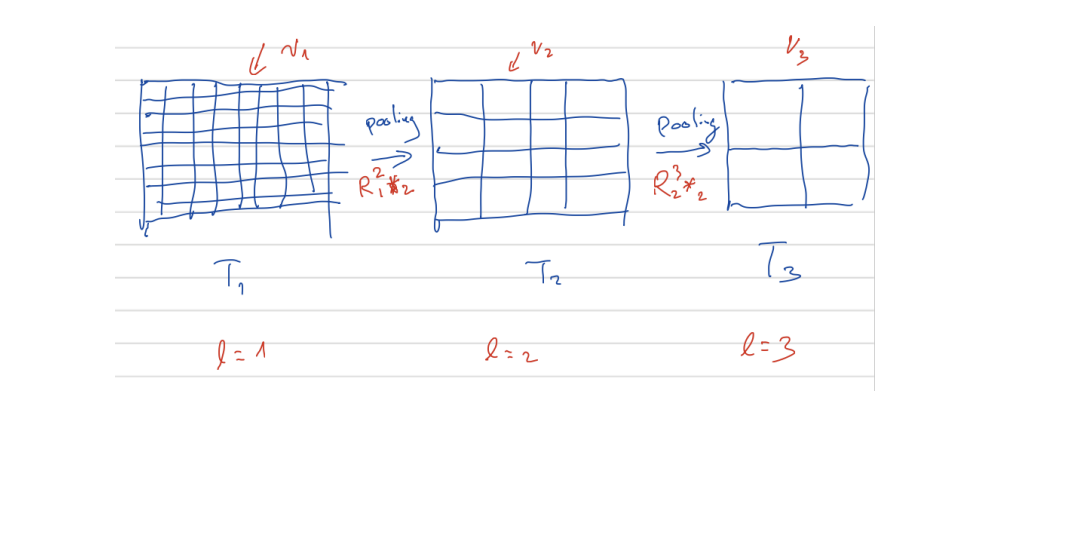 v₁ v₂ v₃
pooling pooling
R₁² *₂ R₂³ *₂
T₁ T₂ T₃
l=1 l=2 l=3